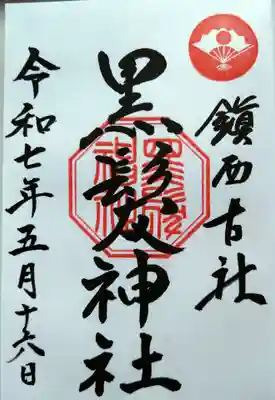 鎮西古社
黒髪神社
令和七年五月十六日